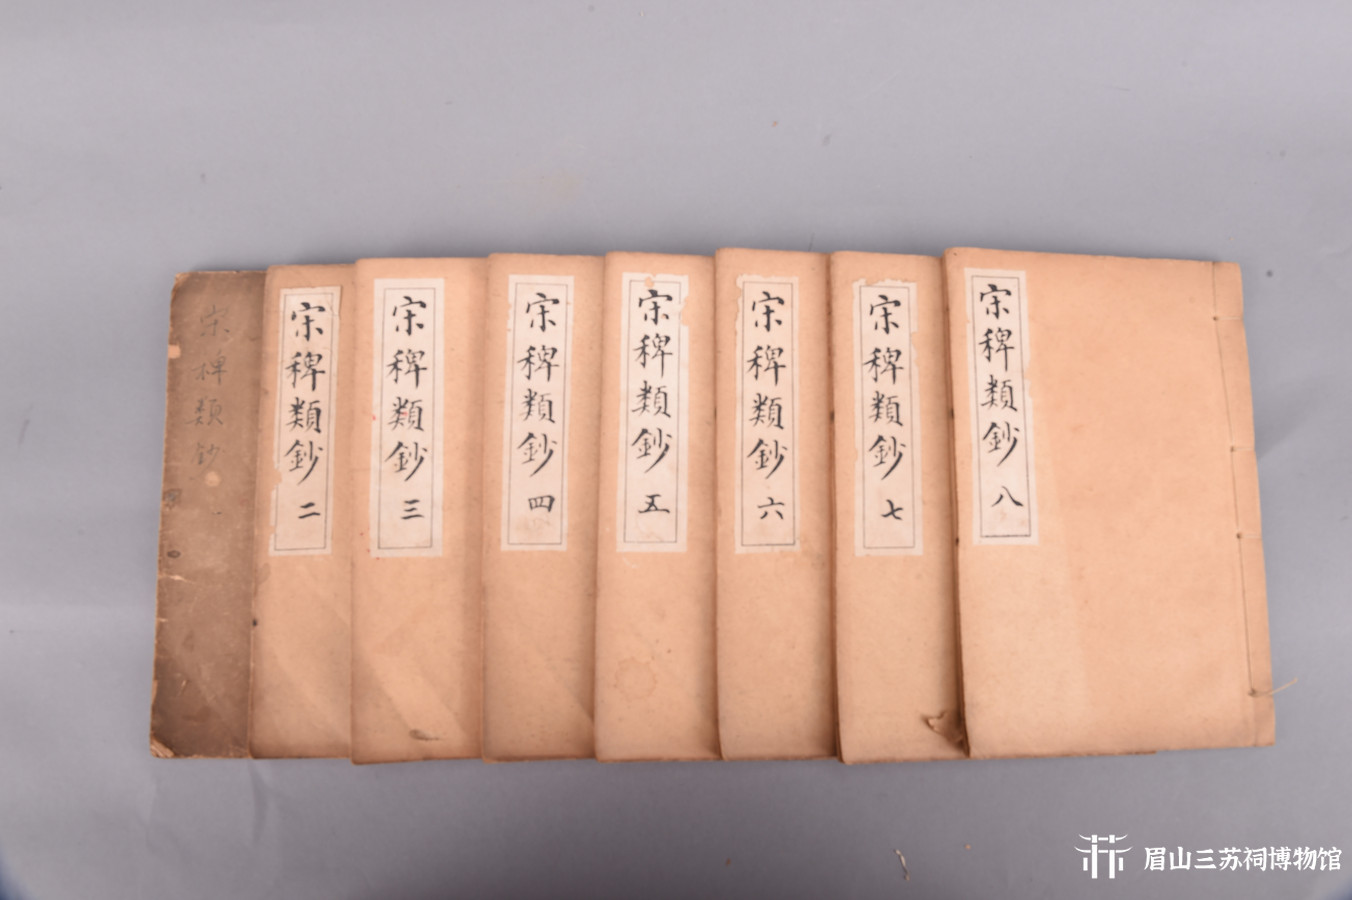 宋稗類鈔
宋稗類鈔 二
宋稗類鈔 三
宋稗類鈔 四
宋稗類鈔 五
宋稗類鈔 六
宋稗類鈔 七
宋稗類鈔 八
眉山三苏祠博物馆